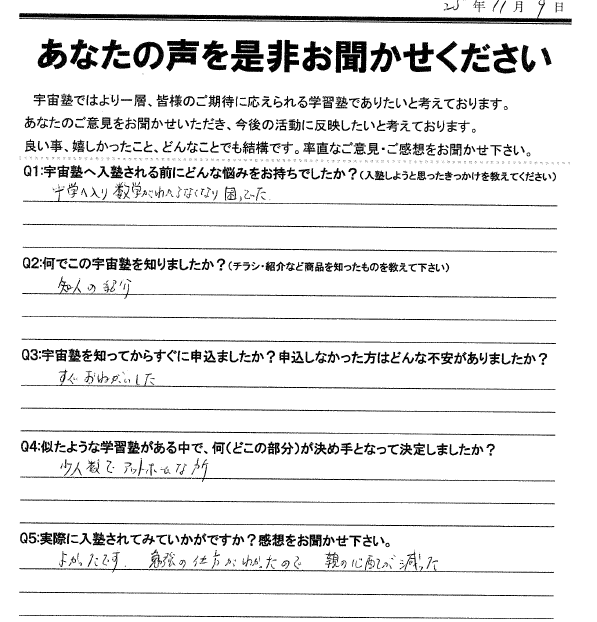 25年11月9日
あなたの声を是非お聞かせください
宇宙塾ではより一層、皆様のご期待に応えられる学習塾でありたいと考えております。
あなたのご意見をお聞かせいただき、今後の活動に反映したいと考えております。
良い事、嬉しかったこと、どんなことでも結構です。率直なご意見・ご感想をお聞かせ下さい。
Q1:宇宙塾へ入塾される前にどんな悩みをお持ちでしたか?(入塾しようと思ったきっかけを教えてください)
中学へ入り数学がわからなくなり困ってた
Q2:何でこの宇宙塾を知りましたか?(チラシ・紹介など商品を知ったものを教えて下さい)
知人の紹介
Q3:宇宙塾を知ってからすぐに申込ましたか?申込しなかった方はどんな不安がありましたか?
すぐおねがいした
Q4:似たような学習塾がある中で、何(どこの部分)が決め手となって決定しましたか?
少人数でアットホームな所
Q5:実際に入塾されてみていかがですか?感想をお聞かせ下さい。
よかったです。勉強の仕方がわかったので 親の心配が減った